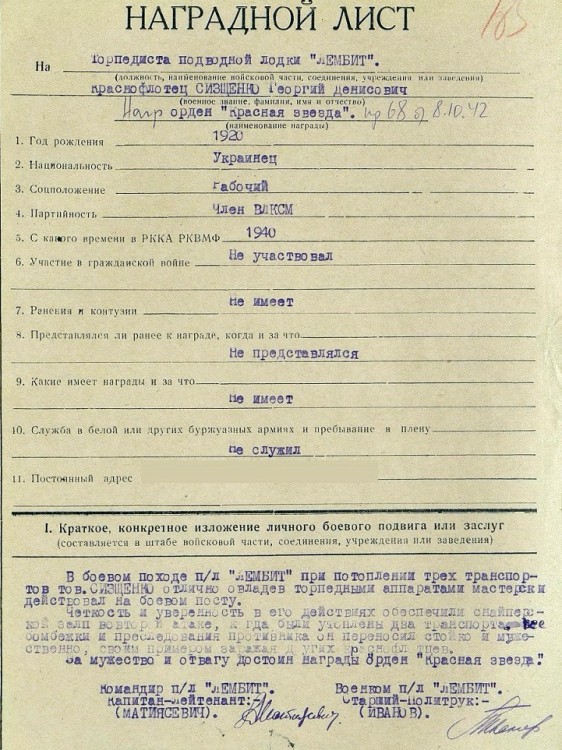 185
НАГРАДНОЙ ЛИСТ
На Торпедиста подводной лодки "ЛЕМБИТ".
(должность, наименование войсковой части, соединения, учреждения или заведения)
Краснофлотец СИЗЩЕНКО Георгий Денисович
(военное звание, фамилия, имя и отчество)
Нагр орден "Красная звезда". пр 68 от 8.10.42
(наименование награды)
1. Год рождения 1920
2. Национальность Украинец
3. Соцположение Рабочий
4. Партийность Член ВЛКСМ
5. С какого времени в РККА РКВМФ 1940
6. Участие в гражданской войне Не участвовал
7. Ранения и контузии Не имеет
8. Представлялся ли ранее к награде, когда и за что
Не представлялся
9. Какие имеет награды и за что
Не имеет
10. Служба в белой или других буржуазных армиях и пребывание в плену
Не служил
11. Постоянный адрес
I. Краткое, конкретное изложение личного боевого подвига или заслуг
(составляется в штабе войсковой части, соединения, учреждения или заведения)
В боевом походе п/л "ЛЕМБИТ" при потоплении трех транспор-
тов тов. СИЗЩЕНКО отлично овладев торпедными аппаратами мастерски
действовал на боевом посту.
Четкость и уверенность в его действиях обеспечили снайпер-
ской залп вовторой атаке, когда были утоплены два транспорта, все
бомбежки и преследования противника он переносил стойко и муже-
ственно, своим примером заражая других краснофлотцев.
За мужество и отвагу Достоин награды Орден "Красная звезда".
Командир п/л "ЛЕМБИТ". Военком п/л "ЛЕМБИТ".
Капитан-Лейтенант:- Старший-Политрук:-
(МАТИЯСЕВИЧ). (ИВАНОВ).